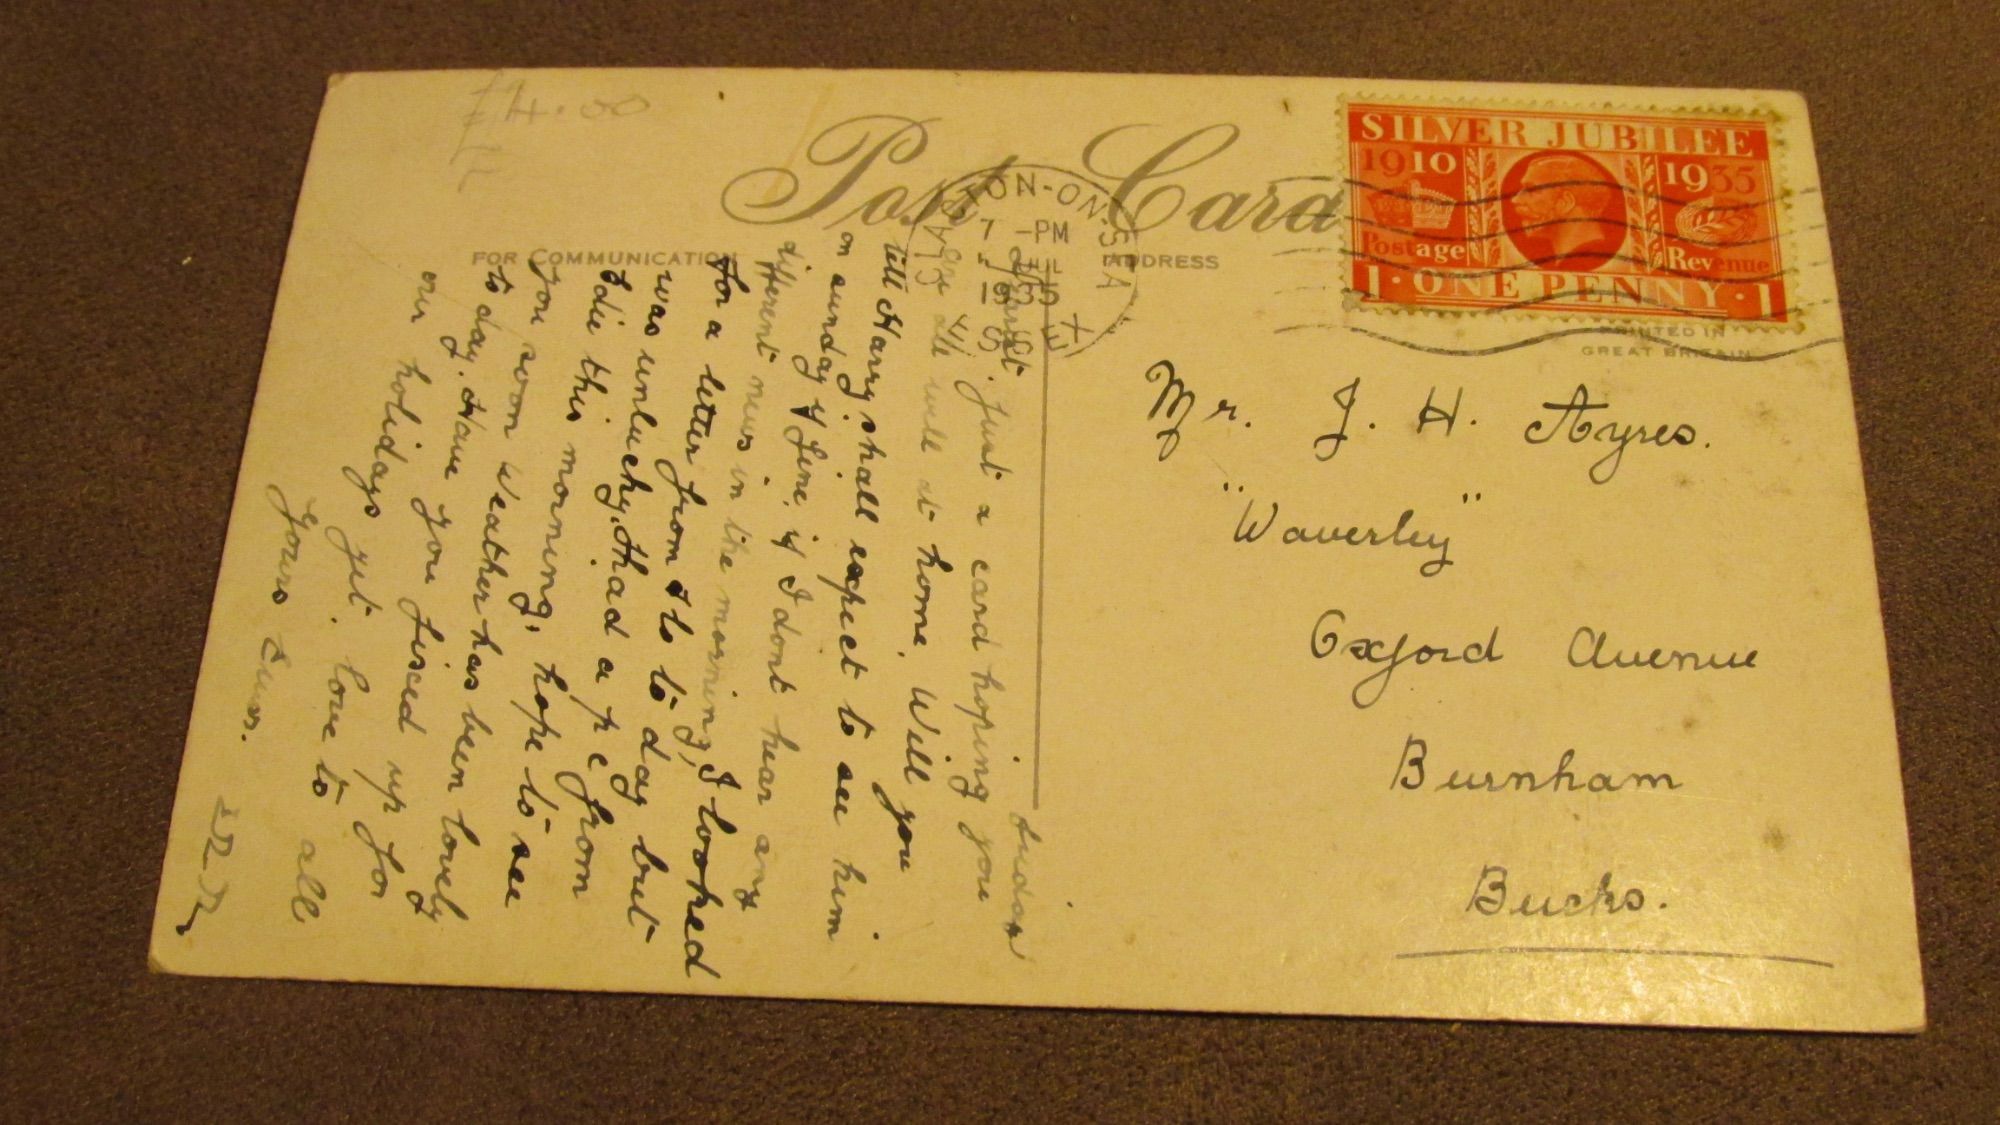 £4.00
Post Card
FOR COMMUNICATION
ADDRESS
SILVER JUBILEE
1910 1935
Postage Revenue
1 · ONE PENNY · 1
PRINTED IN
GREAT BRITAIN
TON-ON-SEA
7 -PM
JUL
1935
ESSEX
Friday
Just a card hoping you
are all well at home. Will you
tell Harry shall expect to see him
on sunday if fine, if I dont hear any
different news in the morning, I looked
for a letter from to to day but
was unlucky, Had a p c from
Edie this morning, hope to see
you soon Weather has been lovely
to day. Have you fixed up for
our holidays yet. love to all
Yours
Mr. J. H. Ayres.
"Waverley"
Oxford Avenue
Burnham
Bucks.